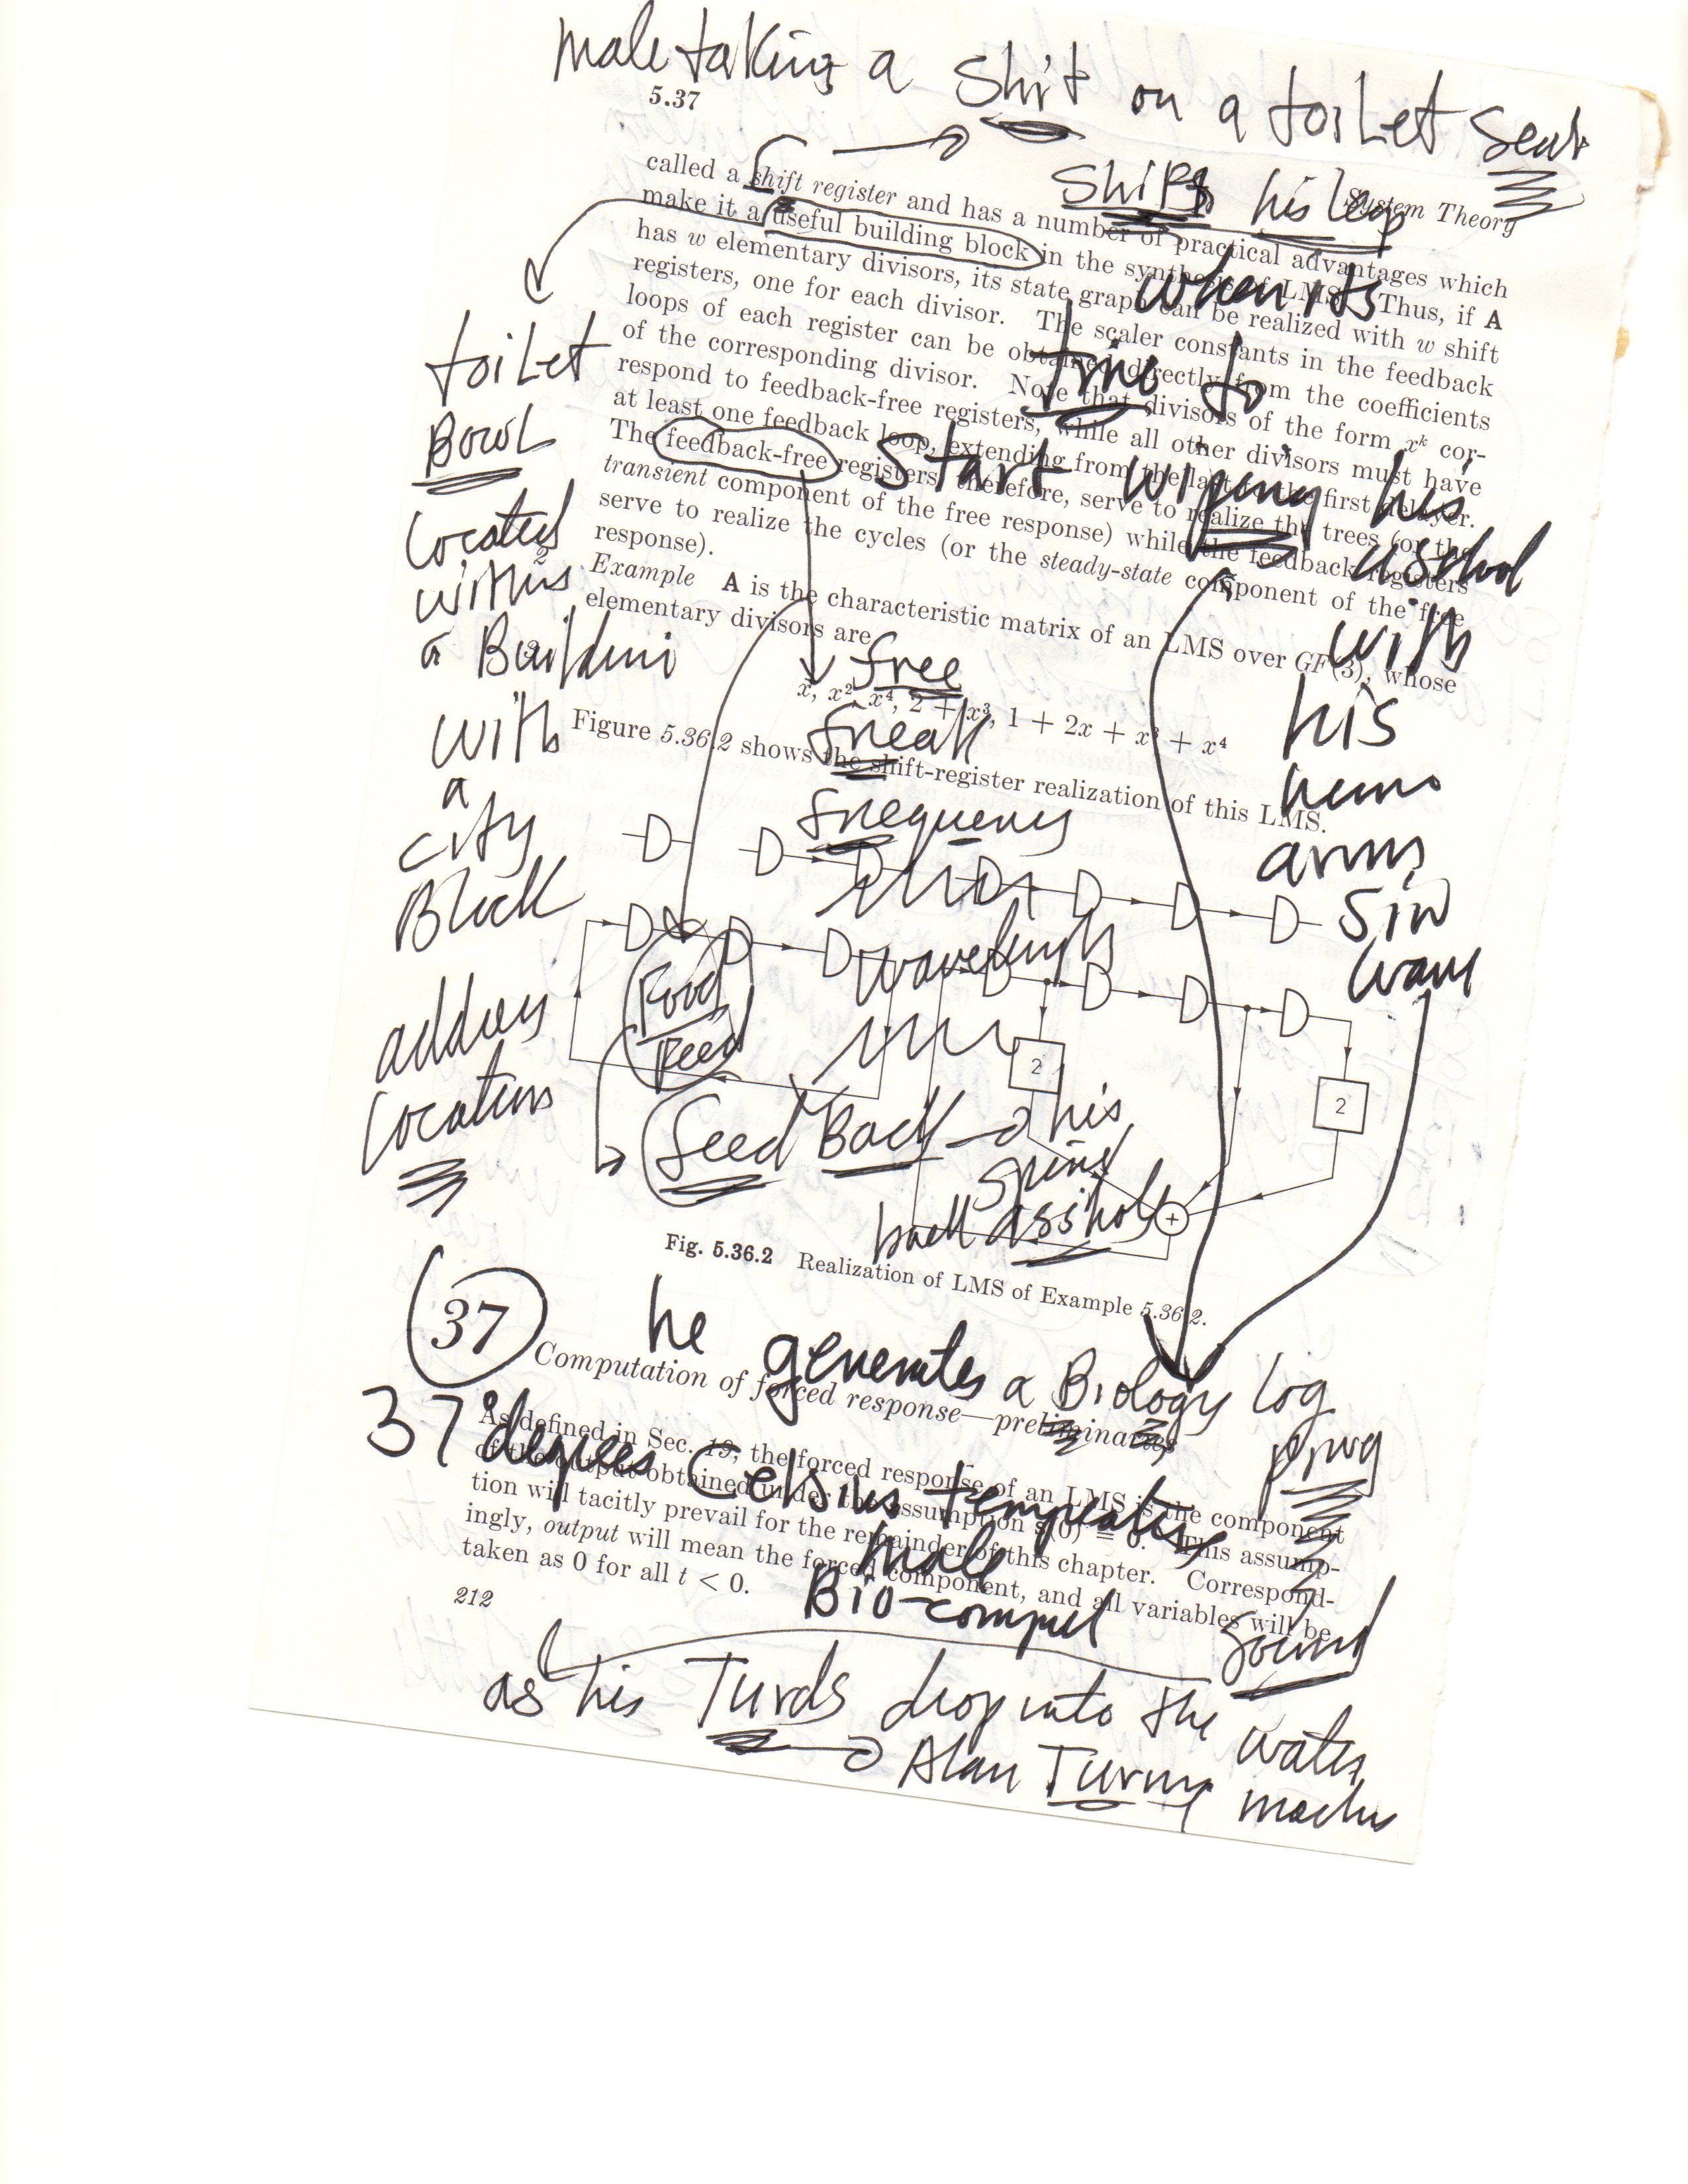 male taking a Shit on a toilet Seat
5.37
System Theory
Shifts his legs
when its
time to
Start wiping his
with
his
arms
called a shift register and has a number of practical advantages which
make it a useful building block in the synthesis of LMS. Thus, if A
has w elementary divisors, its state graph can be realized with w shift
registers, one for each divisor. The scaler constants in the feedback
loops of each register can be obtained directly from the coefficients
of the corresponding divisor. Note that divisors of the form x^k cor-
respond to feedback-free registers, while all other divisors must have
at least one feedback loop, extending from the last to the first delayer.
The feedback-free registers, therefore, serve to realize the trees (or the
transient component of the free response) while the feedback registers
serve to realize the cycles (or the steady-state component of the free
response).
Example 2. A is the characteristic matrix of an LMS over GF(3), whose
elementary divisors are
x, x², x⁴, 2 + x³, 1 + 2x + x³ + x⁴
Figure 5.36.2 shows the shift-register realization of this LMS.
toilet
Bowl
located
within
a
with
a
city
Block
address
location
free
freak
frequency
wavelength
Food
Feed
feed Back his
back asshole
2
2
+
Fig. 5.36.2 Realization of LMS of Example 5.36.2.
he generates a Biology log
37
Computation of forced response—preliminaries
37 degrees Celsius temperature
male
Bio-comput
sound
As defined in Sec. 19, the forced response of an LMS is the component
of the output obtained under the assumption s(0) = 0. This assump-
tion will tacitly prevail for the remainder of this chapter. Correspond-
ingly, output will mean the forced component, and all variables will be
taken as 0 for all t < 0.
212
as his Turds drop into the water
Alan Turing machine